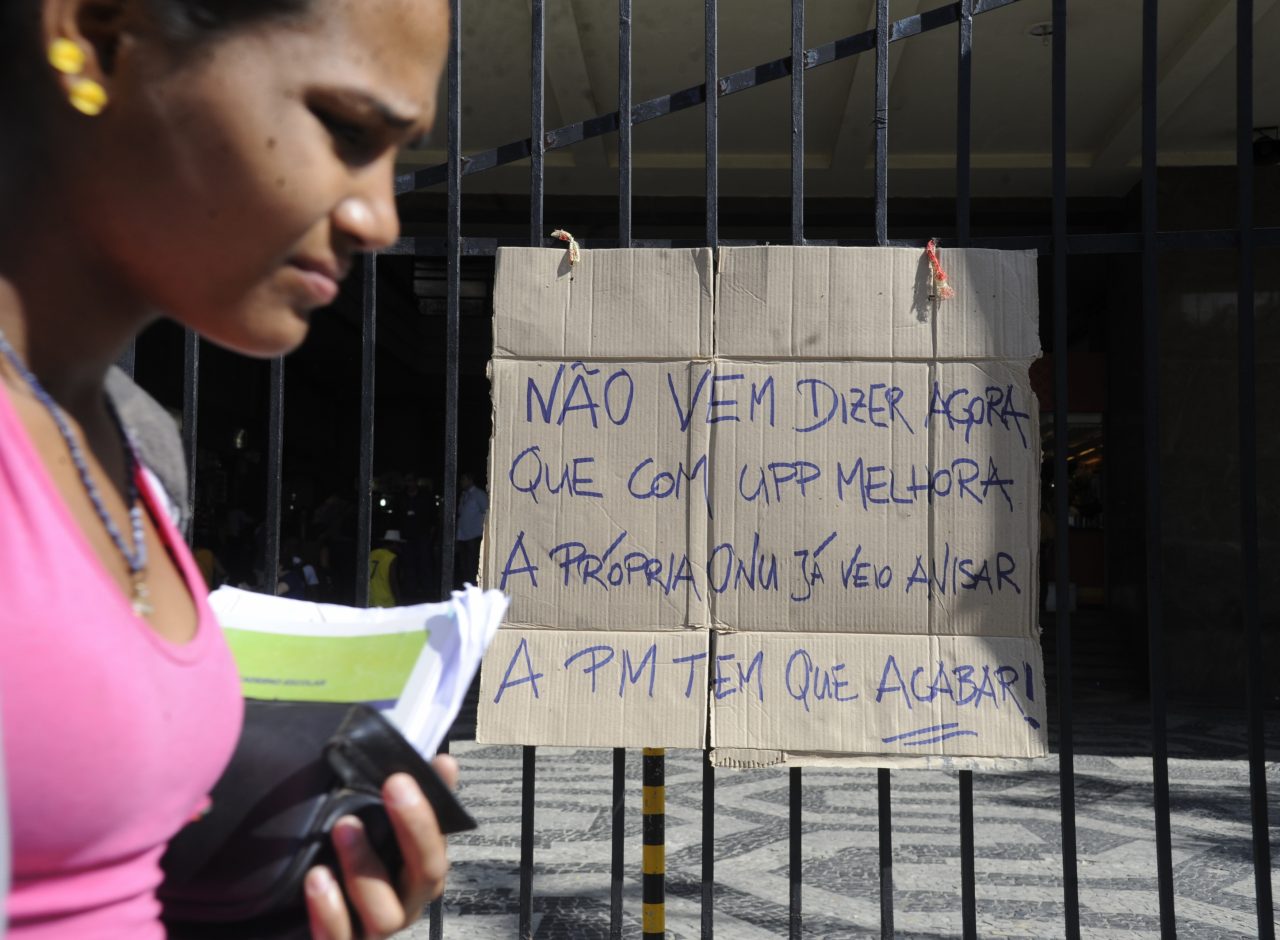 NÃO VEM DIZER AGORA
QUE COM UPP MELHORA
A PRÓPRIA ONU JÁ VEIO AVISAR
A PM TEM QUE ACABAR!
CADERNO ESCOLAR